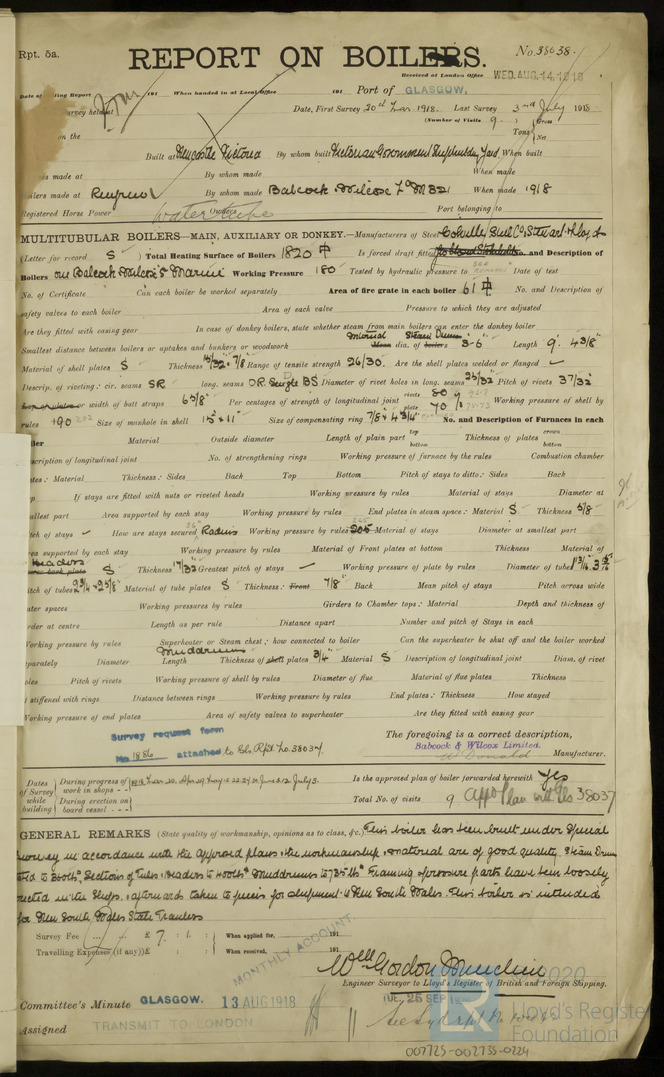 Rpt. 5a.
REPORT ON BOILERS.
No. 38038.
Received at London Office WED. AUG. 14. 1918
Date of Writing Report 191 When handed in at Local Office 191 Port of GLASGOW.
Survey held at Date, First Survey 20th Mar 1918. Last Survey 3rd July 1918
(Number of Visits 9 ) Gross
on the Tons Net
Built at Newcastle Victoria By whom built Victorian Government Shipbuilding Yard When built
made at By whom made When made
Boilers made at Renfrew By whom made Babcock & Wilcox Ld When made 1918
Registered Horse Power Owners Port belonging to
water tube
MULTITUBULAR BOILERS—MAIN, AUXILIARY OR DONKEY.—Manufacturers of Steel Colville, Steel Co, Stewart & Lloyds
(Letter for record S ) Total Heating Surface of Boilers 1820 Is forced draft fitted No. and Description of
Boilers one Babcock & Wilcox Marine Working Pressure 180 Tested by hydraulic pressure to Date of test
No. of Certificate Can each boiler be worked separately Area of fire grate in each boiler 61 No. and Description of
safety valves to each boiler Area of each valve Pressure to which they are adjusted
Are they fitted with easing gear In case of donkey boilers, state whether steam from main boilers can enter the donkey boiler
Smallest distance between boilers or uptakes and bunkers or woodwork Internal dia. of Steam Drum 3-6 Length 9' 4 3/8"
Material of shell plates S Thickness 15/32" 7/8 Range of tensile strength 26/30. Are the shell plates welded or flanged
Descrip. of riveting: cir. seams SR long. seams DR Single BS Diameter of rivet holes in long. seams 25/32 Pitch of rivets 37/32
or width of butt straps 6 5/8" Per centages of strength of longitudinal joint rivets 80 plate 70 Working pressure of shell by
rules 190 Size of manhole in shell 15 x 11" Size of compensating ring 7/8 x 4 3/4" No. and Description of Furnaces in each
Boiler Material Outside diameter Length of plain part top bottom Thickness of plates crown bottom
Description of longitudinal joint No. of strengthening rings Working pressure of furnace by the rules Combustion chamber
plates: Material Thickness: Sides Back Top Bottom Pitch of stays to ditto: Sides Back
Top If stays are fitted with nuts or riveted heads Working pressure by rules Material of stays Diameter at
smallest part Area supported by each stay Working pressure by rules End plates in steam space: Material S Thickness 5/8
Pitch of stays How are stays secured Radius Working pressure by rules 205 Material of stays Diameter at smallest part
Area supported by each stay Working pressure by rules Material of Front plates at bottom Thickness Material of
Headers S Thickness 17/32 Greatest pitch of stays Working pressure of plate by rules Diameter of tubes 1 3/4 & 3 1/2"
Pitch of tubes 2 3/4 & 2 5/8" Material of tube plates S Thickness: Front 7/8" Back Mean pitch of stays Pitch across wide
water spaces Working pressures by rules Girders to Chamber tops: Material Depth and thickness of
girder at centre Length as per rule Distance apart Number and pitch of Stays in each
Working pressure by rules Superheater or Steam chest; how connected to boiler Can the superheater be shut off and the boiler worked
separately Diameter Length Muddrum Thickness of shell plates 3/4" Material S Description of longitudinal joint Diam. of rivet
holes Pitch of rivets Working pressure of shell by rules Diameter of flue Material of flue plates Thickness
If stiffened with rings Distance between rings Working pressure by rules End plates: Thickness How stayed
Working pressure of end plates Area of safety valves to superheater Are they fitted with easing gear
Survey request form
No. 1886 attached to Gls. Rpt No. 38037
The foregoing is a correct description,
Babcock & Wilcox Limited.
Manufacturer.
Dates of Survey while building During progress of work in shops - - 1918 Mar 20. Apr 29. May 10 22 24 31 June 5. 12 July 3. Is the approved plan of boiler forwarded herewith Yes
During erection on board vessel - - - Total No. of visits 9 App. Plan with Gls 38037
GENERAL REMARKS (State quality of workmanship, opinions as to class, &c.) This boiler has been built under Special
Survey in accordance with the approved plans, the workmanship & material are of good quality. Steam Drum
tested to 360 lbs, Sections of Tubes & Headers to 400 lbs & Muddrums to 735 lbs. Framing & pressure parts have been loosely
erected in the Shops, & afterwards taken to pieces for shipment to New South Wales. This boiler is intended
for New South Wales State Trawlers
Survey Fee ... £ 7 : 1 : When applied for, 191
Travelling Expenses (if any) £ : : When received, 191
MONTHLY ACCOUNT.
Wm Gordon
Engineer Surveyor to Lloyd's Register of British and Foreign Shipping.
Committee's Minute GLASGOW. 13 AUG 1918
TUE. 25 SEP
Assigned TRANSMIT TO LONDON
2020
Lloyd's Register
Foundation
007725-007735-0224